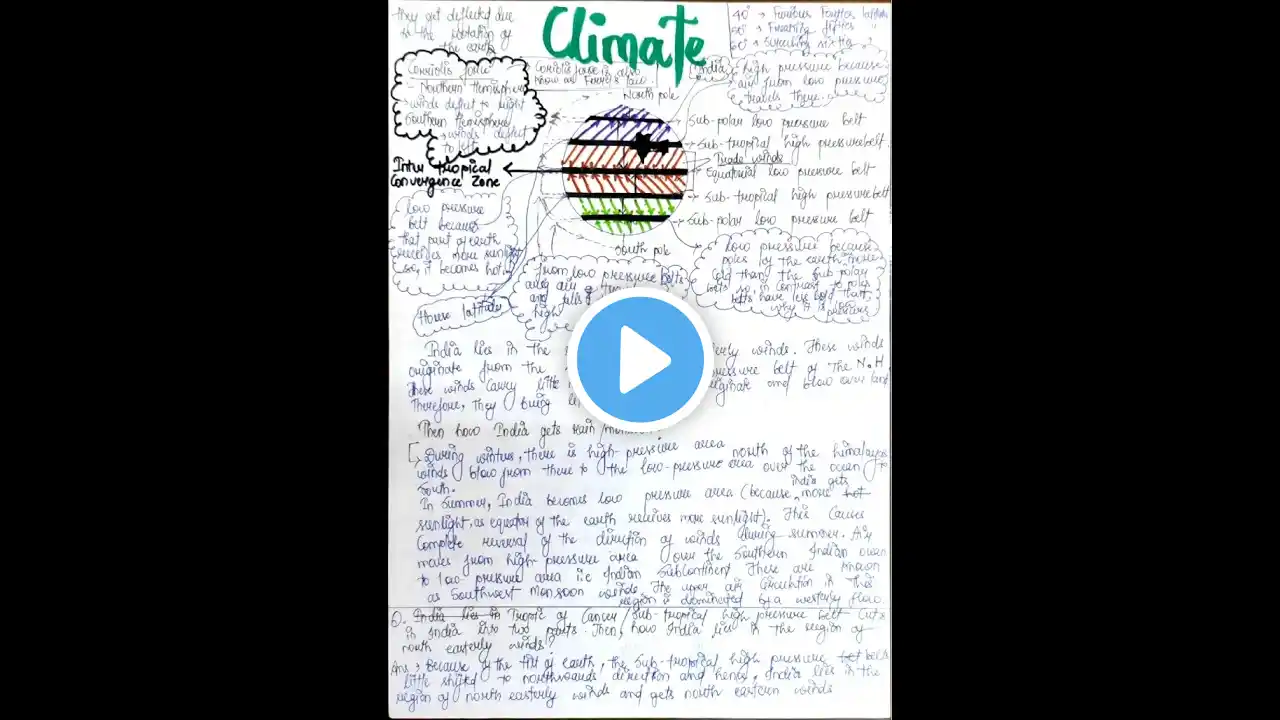 they get deflected due
to the rotation of
the earth
Climate
40° → Furious Forties
50° →
60° →
Corriolis force
- Northern Hemisphere
→ winds deflect to right
Southern Hemisphere
→ winds deflect
to left
Coriolis force is also
know as Ferrel's law
India
high pressure because
air from low pressure
travels there.
North pole
Sub-polar low pressure belt
Sub-tropical high pressure belt.
Trade winds
Equatorial low pressure belt
Sub-tropical high pressure belt
Sub-polar low pressure belt
South pole
Inter tropical
Convergence Zone
low pressure
belt because
that part of earth
receives more sunlight
so, it becomes hot.
Horse latitude
from low pressure belts
and falls
high
low pressure because
poles of the earth more
cold than the sub-polar
belts so, in contrast to poles
belts have less cold that's
why it is low
pressure
India lies in the
erly winds. These winds
originate from the
pressure belt of the N.H
These winds carry little
originate and blow over land
Therefore, they bring
Then how India gets rain
During winters, there is high-pressure area north of the himalayas
winds blow from there to the low-pressure area over the ocean to
South.
In Summer, India becomes low pressure area (because, India gets more hot
sunlight, as equator of the earth receives more sunlight). This Causes
Complete reversal of the direction of winds during summer. Air
moves from high-pressure area over the Southern Indian ocean
to low-pressure area i.e Indian Subcontinent These are known
as Southwest monsoon winds. The upper air Circulation in this
region is dominated by a westerly flow.
Q. India lies in Tropic of Cancer / sub-tropical high pressure belt Cuts
in India into two parts. Then, how India lies in the region of
north easterly winds?
Ans → Because of the tilt of earth, the Sub-tropical high pressure belt
little shifted to northwards direction and hence, India lies in the
region of north easterly winds and gets north eastern winds